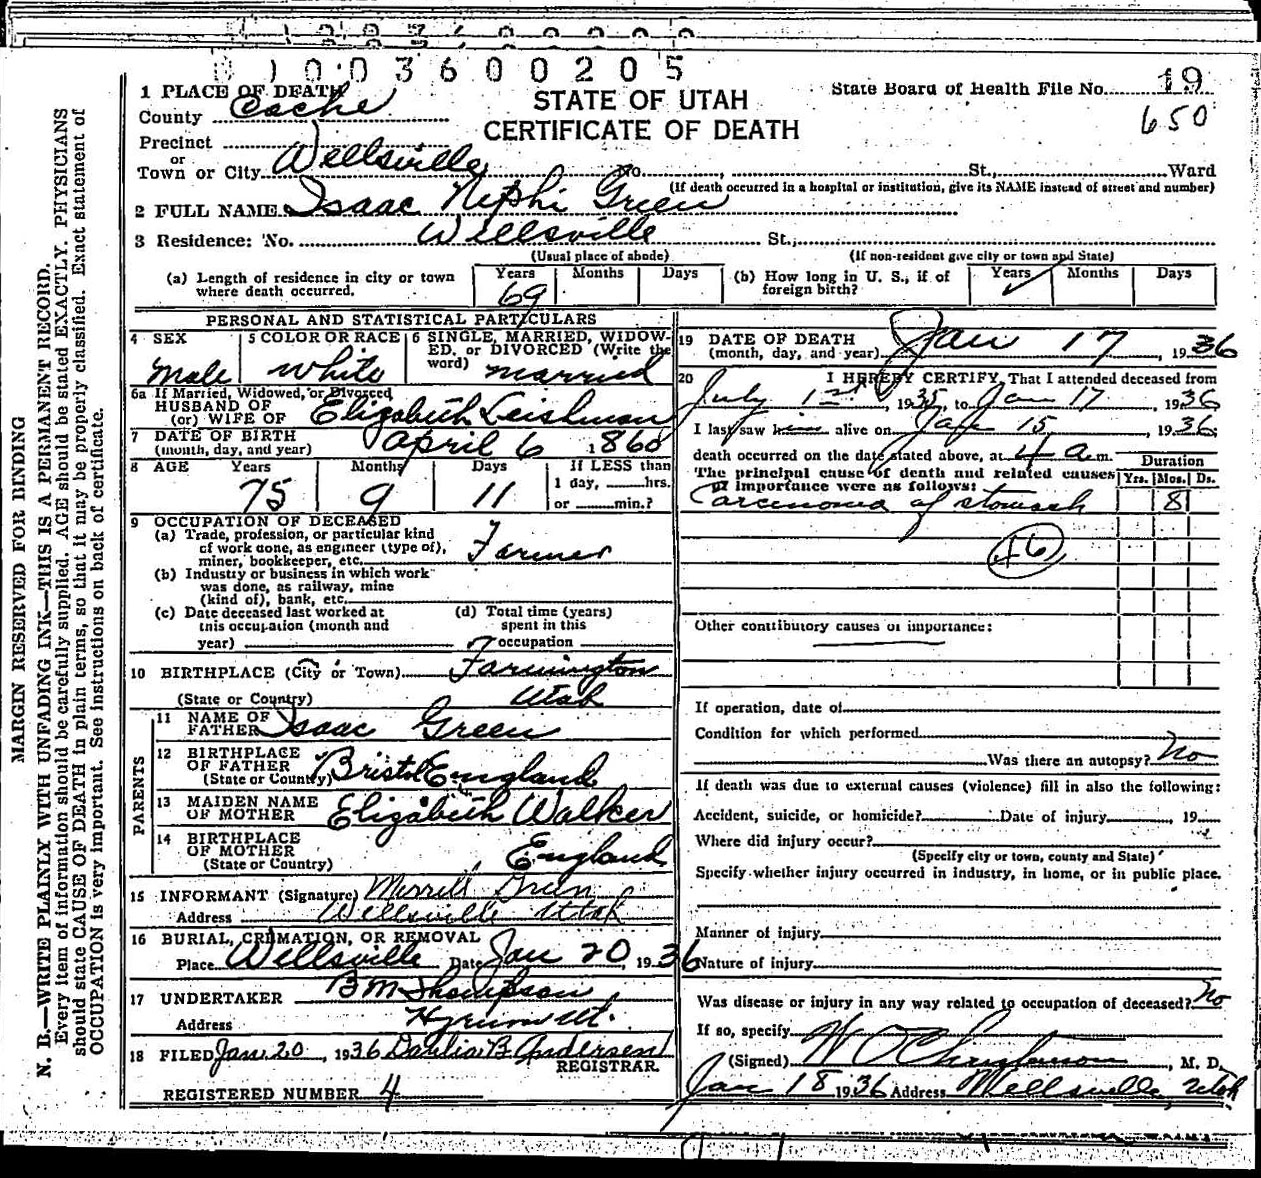 1003600205
1 PLACE OF DEATH
County Cache
STATE OF UTAH
CERTIFICATE OF DEATH
State Board of Health File No. 19
650
Precinct
or
Town or City Wellsville No. St., Ward
(If death occurred in a hospital or institution, give its NAME instead of street and number)
2 FULL NAME Isaac Nephi Green
3 Residence: No. Wellsville St.,
(Usual place of abode) (If non-resident give city or town and State)
(a) Length of residence in city or town where death occurred. Years 69 Months Days
(b) How long in U. S., if of foreign birth? Years Months Days
PERSONAL AND STATISTICAL PARTICULARS
4 SEX Male
5 COLOR OR RACE white
6 SINGLE, MARRIED, WIDOWED, or DIVORCED (Write the word) married
6a If Married, Widowed, or Divorced
HUSBAND OF
(or) WIFE OF Elizabeth Leishman
7 DATE OF BIRTH
(month, day, and year) April 6 1860
8 AGE Years 75 Months 9 Days 11 If LESS than 1 day, hrs. or min.?
9 OCCUPATION OF DECEASED
(a) Trade, profession, or particular kind
of work done, as engineer (type of),
miner, bookkeeper, etc. Farmer
(b) Industry or business in which work
was done, as railway, mine
(kind of), bank, etc.
(c) Date deceased last worked at
this occupation (month and
year)
(d) Total time (years)
spent in this
occupation
10 BIRTHPLACE (City or Town) Farmington
(State or Country) Utah
PARENTS
11 NAME OF
FATHER Isaac Green
12 BIRTHPLACE
OF FATHER
(State or County) Bristol England
13 MAIDEN NAME
OF MOTHER Elizabeth Walker
14 BIRTHPLACE
OF MOTHER
(State or Country) England
15 INFORMANT (Signature) Merrill Green
Address Wellsville Utah
16 BURIAL, CREMATION, OR REMOVAL
Place Wellsville Date Jan 20, 1936
17 UNDERTAKER B M Thompson
Address Hyrum Ut.
18 FILED Jan 20, 1936 Dahlia B Andersen
REGISTRAR.
REGISTERED NUMBER 4
19 DATE OF DEATH
(month, day, and year) Jan 17, 1936
20 I HEREBY CERTIFY, That I attended deceased from
July 1st, 1935, to Jan 17, 1936
I last saw him alive on Jan 15, 1936
death occurred on the date stated above, at 4 a m.
The principal cause of death and related causes
of importance were as follows:
Duration
Yrs. Mos. Ds.
Carcinoma of stomach 8
46
Other contributory causes of importance:
If operation, date of
Condition for which performed
Was there an autopsy? No
If death was due to external causes (violence) fill in also the following:
Accident, suicide, or homicide? Date of injury, 19
Where did injury occur?
(Specify city or town, county and State)
Specify whether injury occurred in industry, in home, or in public place.
Manner of injury
Nature of injury
Was disease or injury in any way related to occupation of deceased? No
If so, specify
(Signed) W O Christenson, M. D.
Jan 18 1936 Address Wellsville, Utah
MARGIN RESERVED FOR BINDING
N. B.—WRITE PLAINLY WITH UNFADING INK—THIS IS A PERMANENT RECORD.
Every item of information should be carefully supplied. AGE should be stated EXACTLY. PHYSICIANS
should state CAUSE OF DEATH in plain terms, so that it may be properly classified. Exact statement of
OCCUPATION is very important. See instructions on back of certificate.